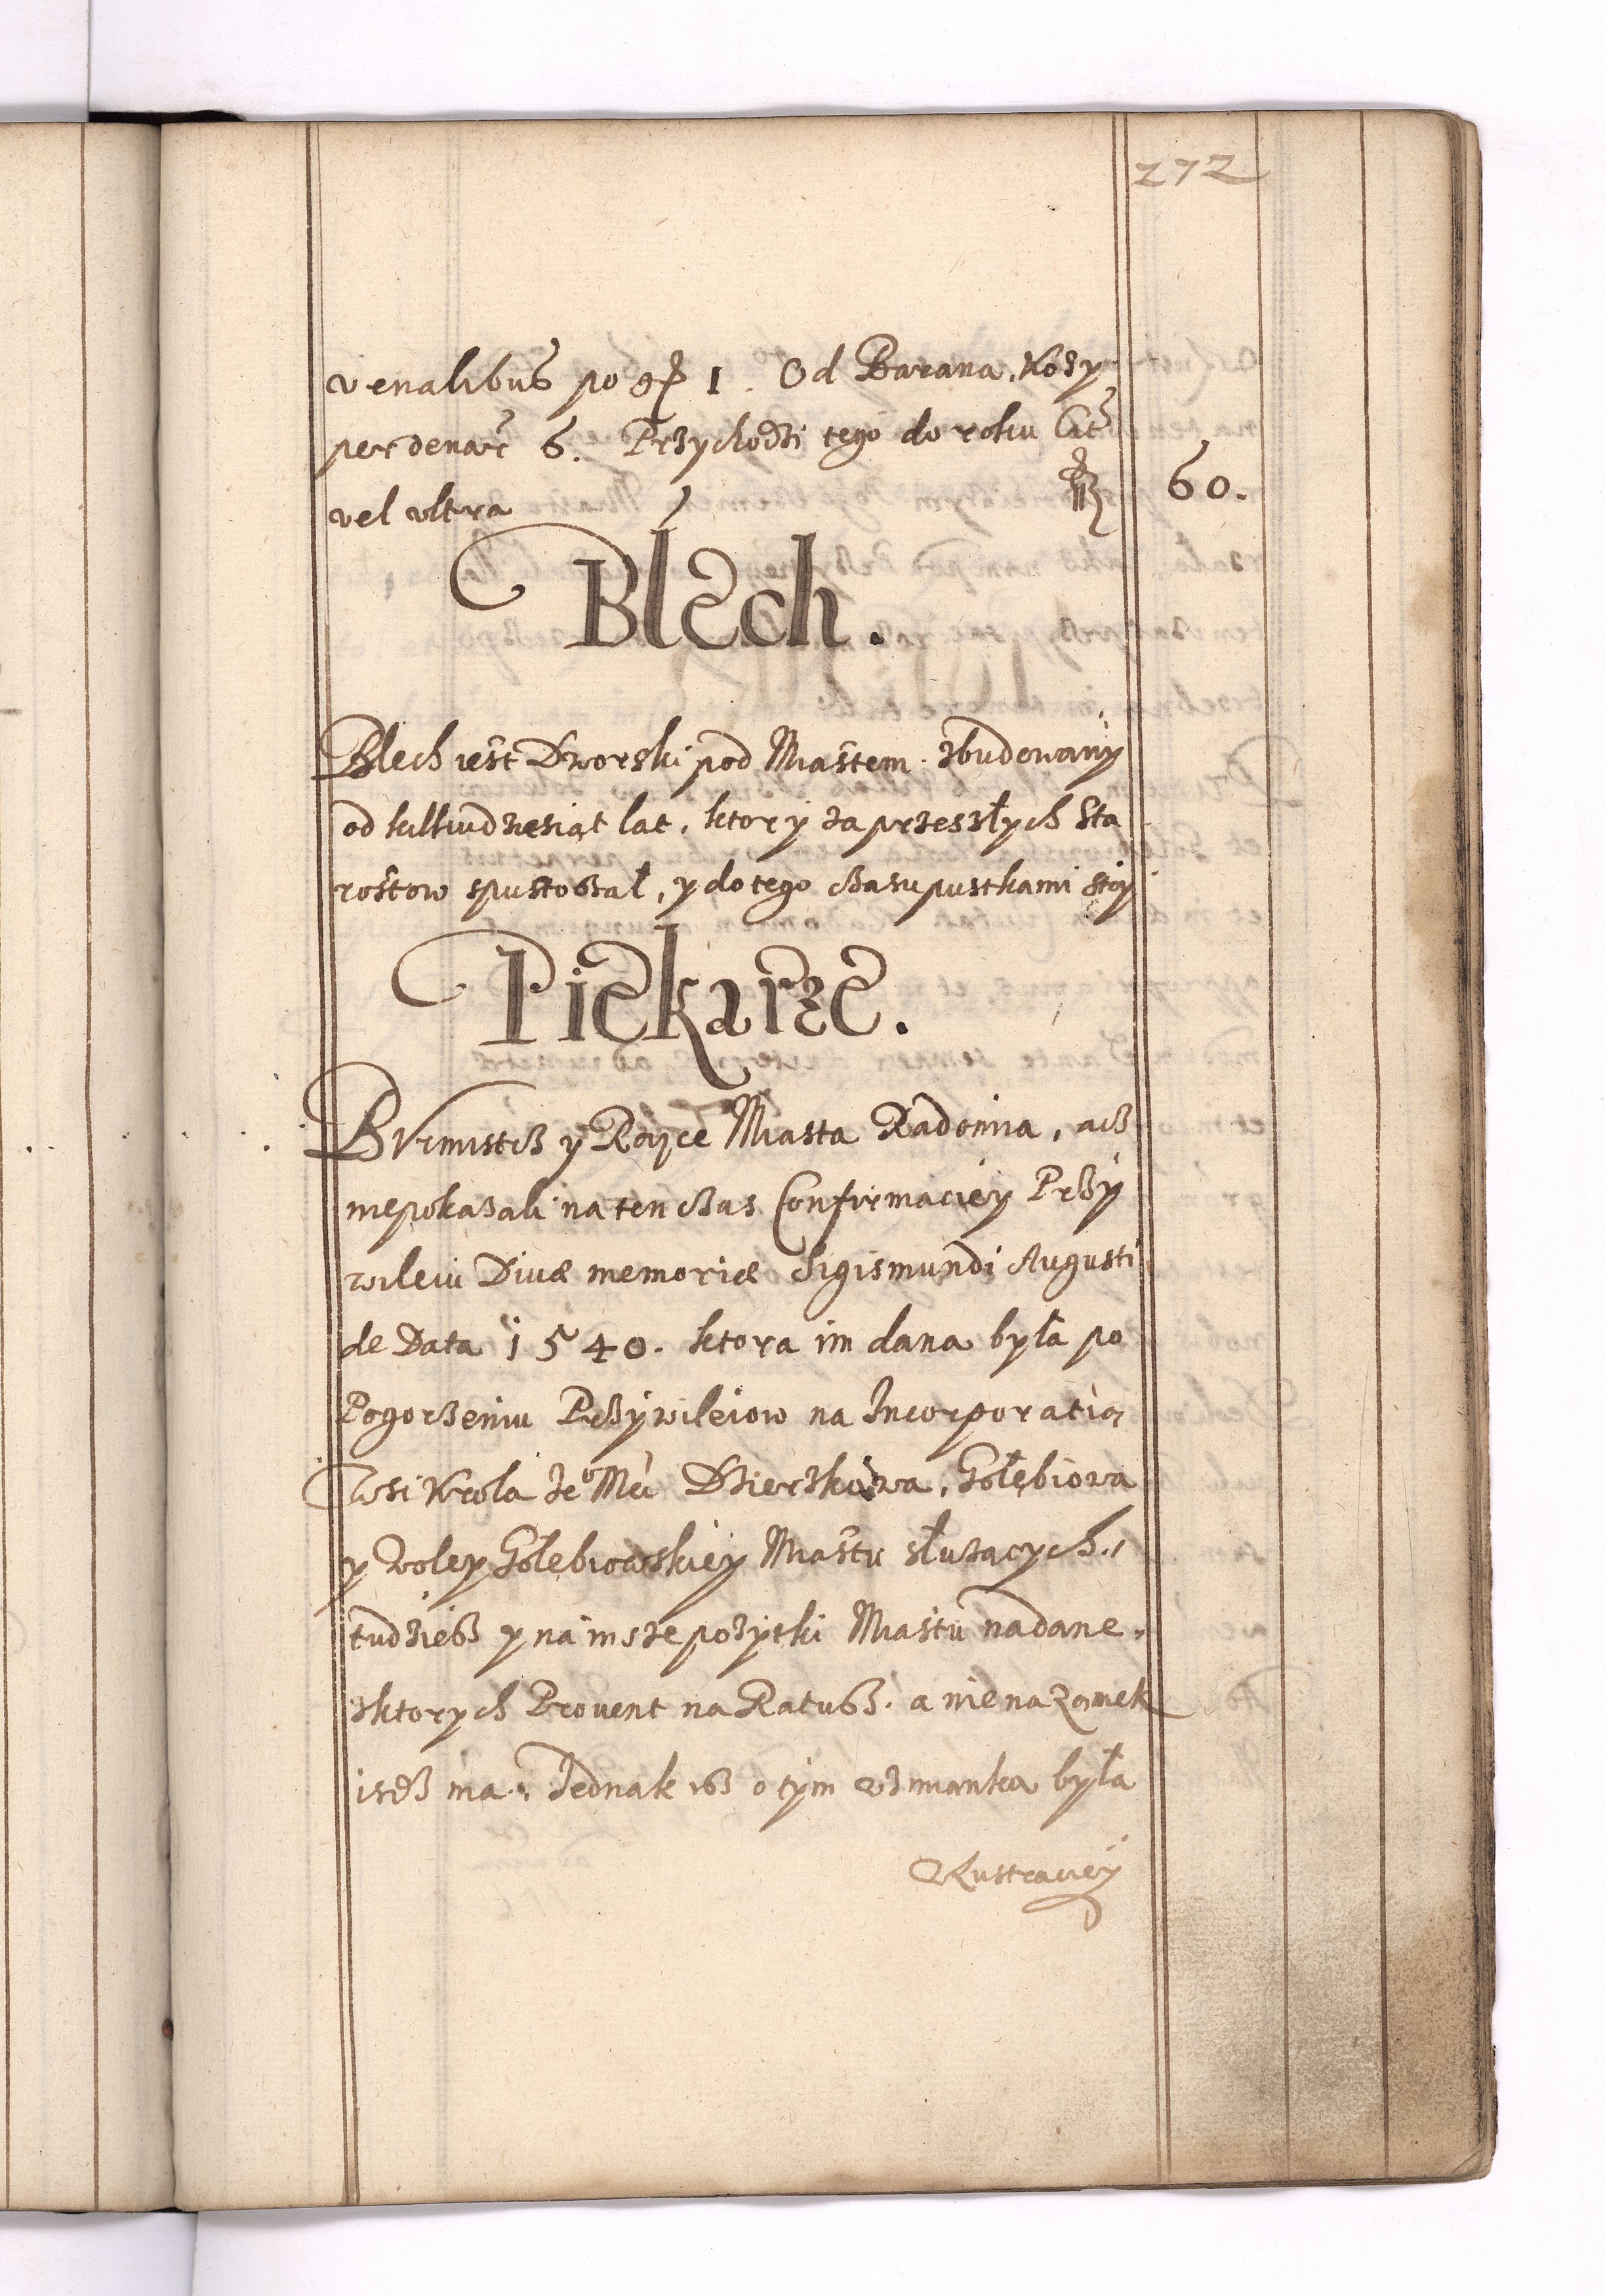 272
venalibus po gr 1. Od Barana, Kozy
per denar 6. Przychodzi tego do roku Cir
vel vltra fl 60.
Blech.
Blech iest Dworski pod Miastem zbudowany
od kilkudziesiąt lat, ktory za przeszłych Sta
rostow spustoszał, y do tego czasu pustkami stoi
Piekarze.
BVrmistrz y Rajce Miasta Radomia, acz
niepokazali na ten czas Confirmaciey Przy
wileiu Diuæ memoriæ Sigismundi Augusti
de Data 1540. ktora im dana była po
Pogorzeniu Przywileiow na Incorporatią
Wsi Krola Je° Mci Dzierzkowa, Gołębiowa
y Woley Gołębiowskiey Miastu służących,
tudziesz y na insze pożytki Miastu nadane,
z ktorych Prouent na Ratusz, a nie na Zamek
isdz ma. Jednak isz o tym wzmianka była
w Lustraciey